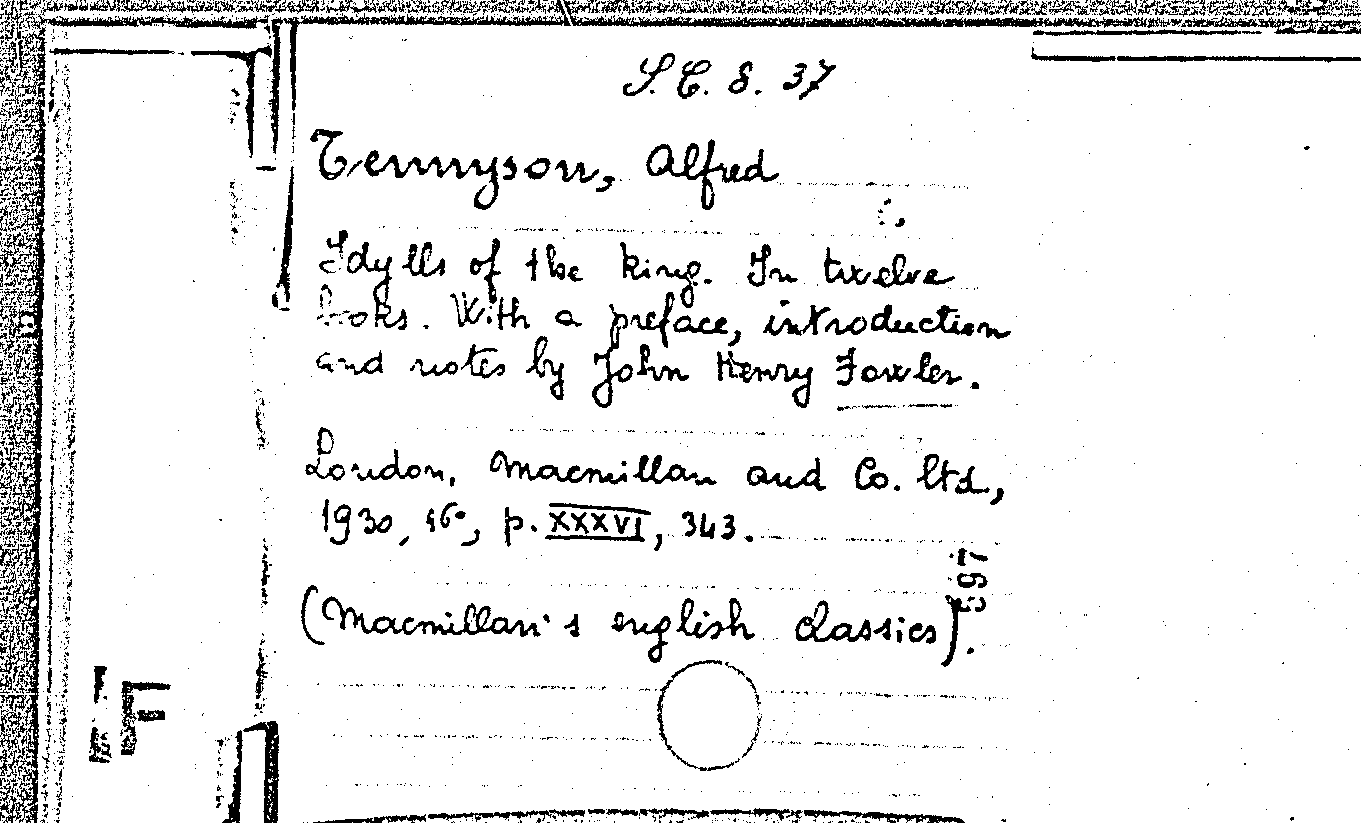 S.C. 8. 37
Tennyson, Alfred
Idylls of the king. In twelve
books. With a preface, introduction
and notes by John Henry Fowler.
London, Macmillan and Co. ltd.,
1930, 16°, p. XXXVI, 343.
597
(Macmillan's english classics).